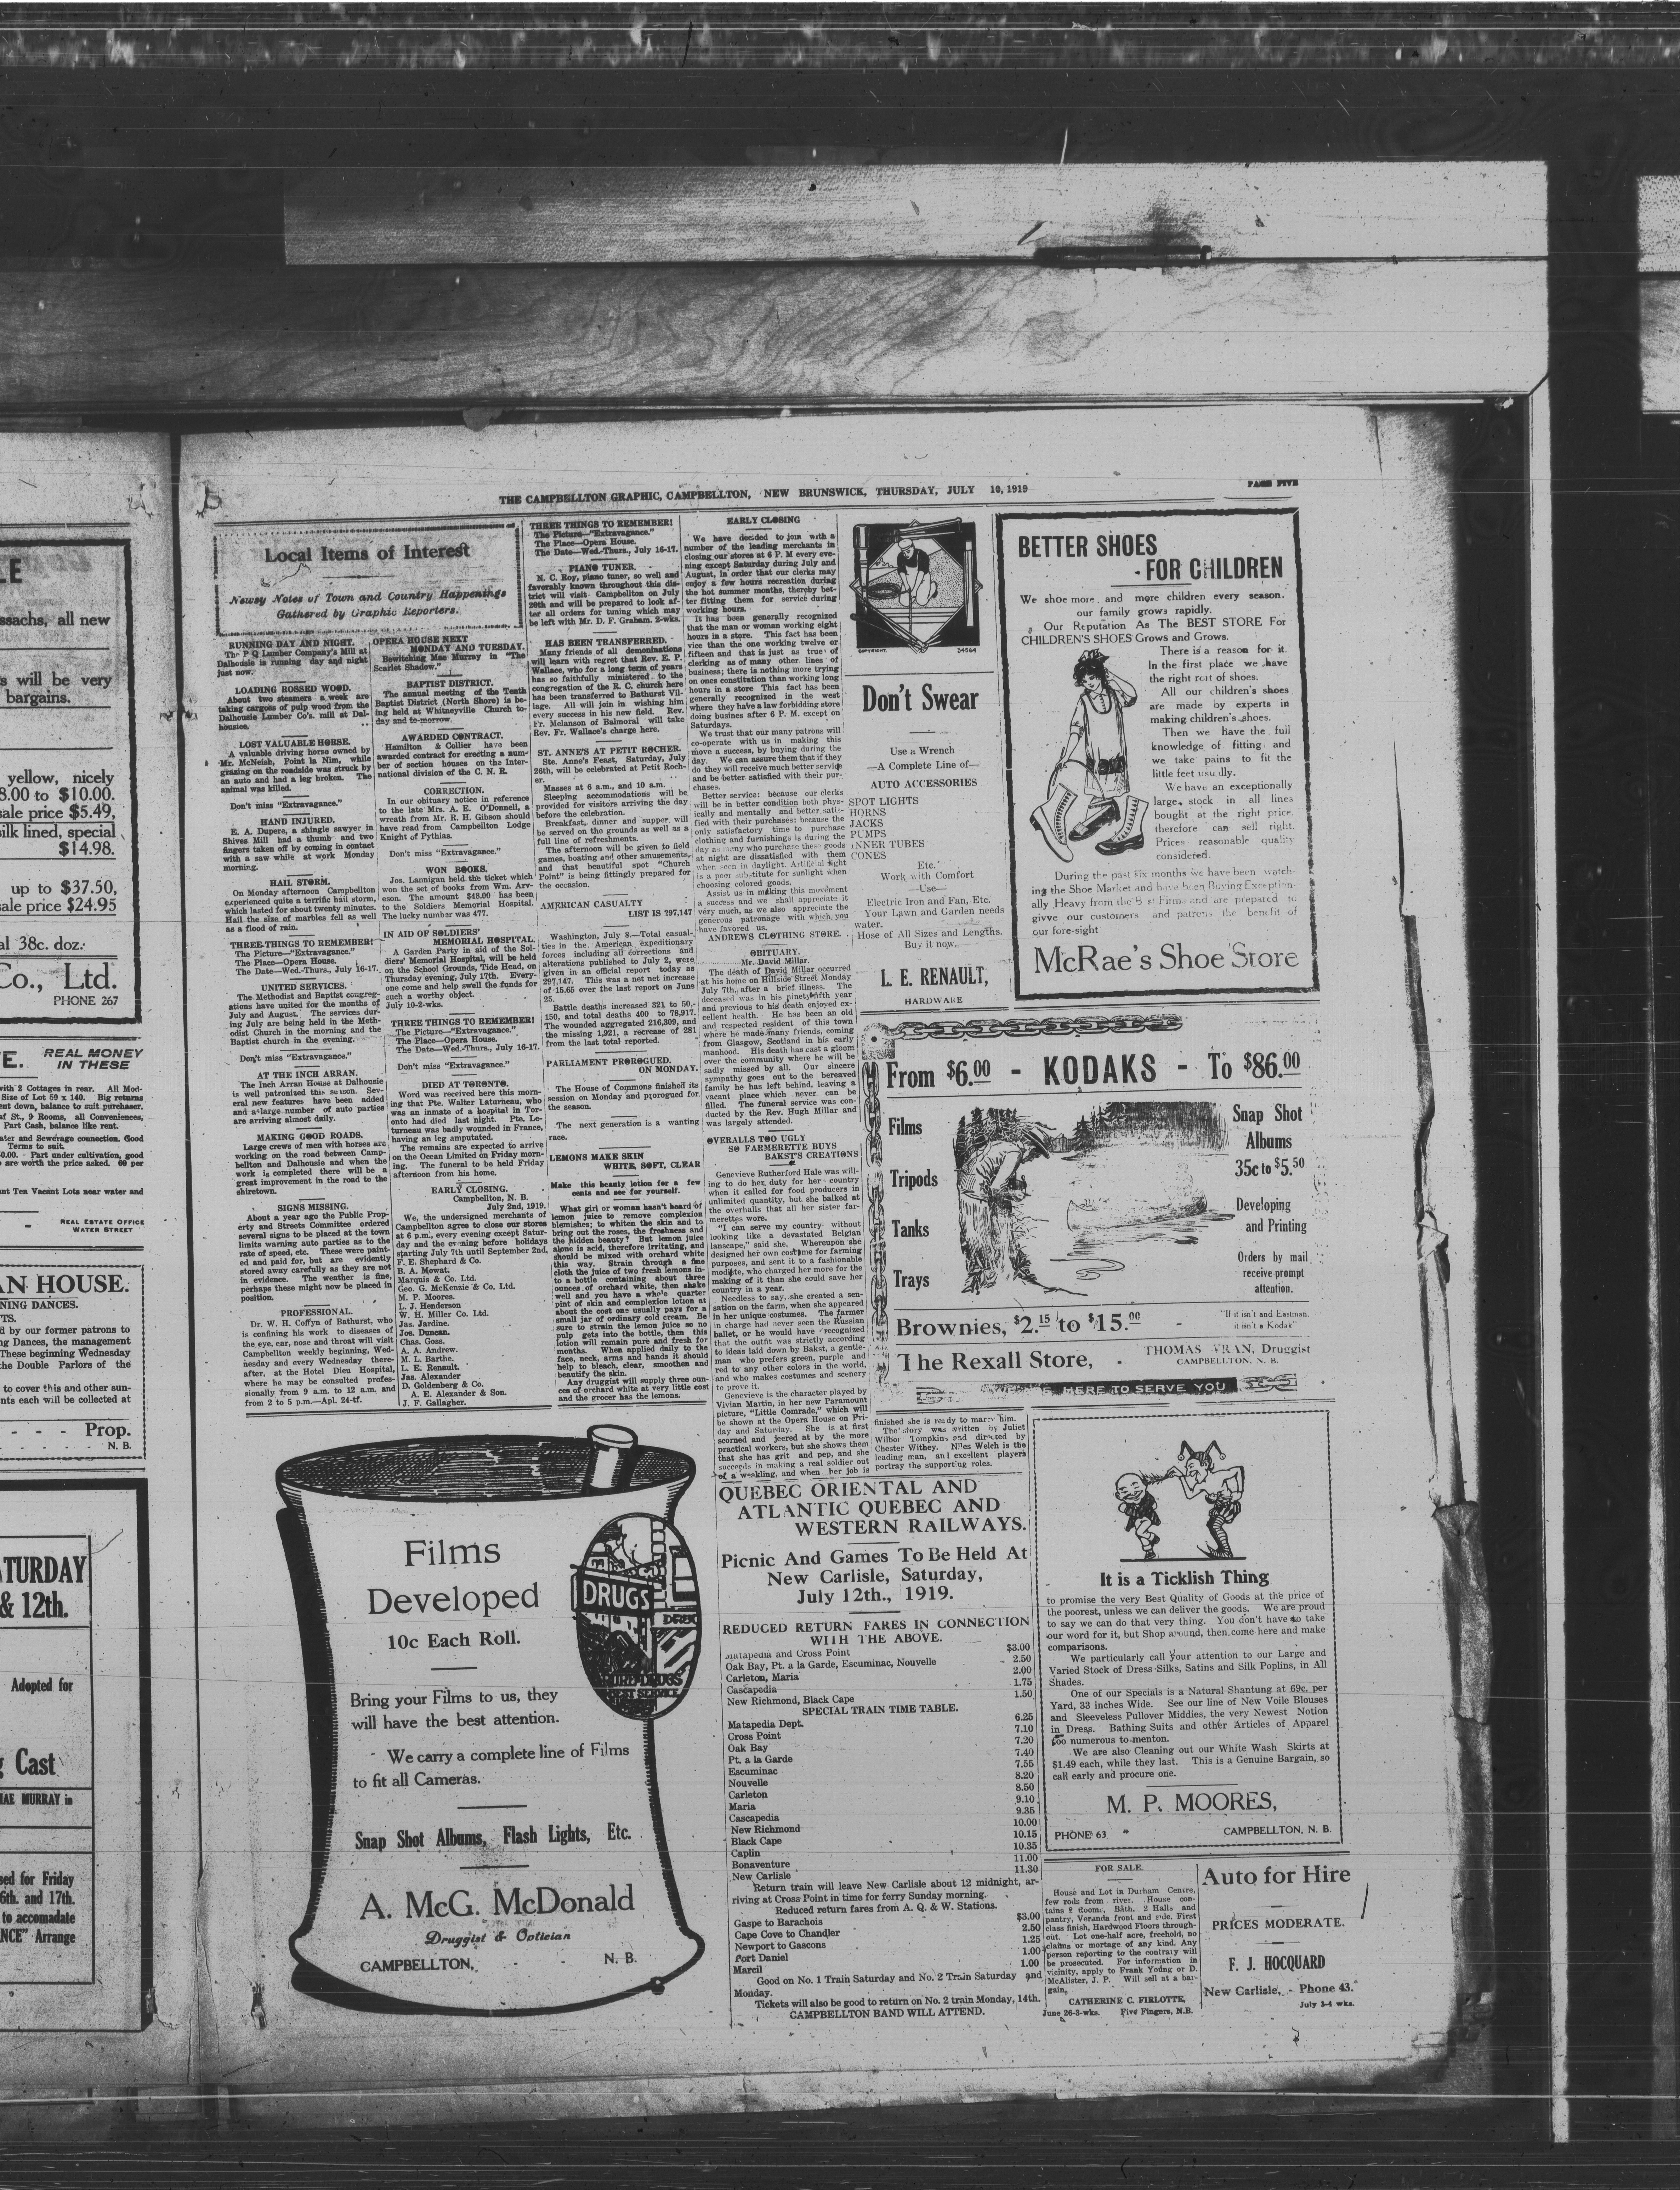 THE CAMPBELLTON GRAPHIC, CAMPBELLTON, NEW BRUNSWICK, THURSDAY, JULY 10, 1919
PAGE FIVE
Local Items of Interest
Newsy Notes of Town and Country Happenings
Gathered by Graphic Reporters.
RUNNING DAY AND NIGHT.
The P Q Lumber Company's Mill at
Dalhousie is running day and night
just now.
LOADING ROSSED WOOD.
About two steamers a week are
taking cargoes of pulp wood from the
Dalhousie Lumber Co's. mill at Dal-
housie.
LOST VALUABLE HORSE.
A valuable driving horse owned by
Mr. McNeish, Point la Nim, while
grazing on the roadside was struck by
an auto and had a leg broken. The
animal was killed.
Don't miss "Extravagance."
HAND INJURED.
E. A. Dupere, a shingle sawyer in
Shives Mill had a thumb and two
fingers taken off by coming in contact
with a saw while at work Monday
morning.
HAIL STORM.
On Monday afternoon Campbellton
experienced quite a terrific hail storm,
which lasted for about twenty minutes.
Hail the size of marbles fell as well
as a flood of rain.
THREE THINGS TO REMEMBER!
The Picture—"Extravagance."
The Place—Opera House.
The Date—Wed.-Thurs., July 16-17.
UNITED SERVICES.
The Methodist and Baptist congreg-
ations have united for the months of
July and August. The services dur-
ing July are being held in the Meth-
odist Church in the morning and the
Baptist church in the evening.
Don't miss "Extravagance."
AT THE INCH ARRAN.
The Inch Arran House at Dalhousie
is well patronized this season. Sev-
eral new features have been added
and a large number of auto parties
are arriving almost daily.
MAKING GOOD ROADS.
Large crews of men with horses are
working on the road between Camp-
bellton and Dalhousie and when the
work is completed there will be a
great improvement in the road to the
shiretown.
SIGNS MISSING.
About a year ago the Public Prop-
erty and Streets Committee ordered
several signs to be placed at the town
limits warning auto parties as to the
rate of speed, etc. These were paint-
ed and paid for, but are evidently
stored away carefully as they are not
in evidence. The weather is fine,
perhaps these might now be placed in
position.
PROFESSIONAL.
Dr. W. H. Coffyn of Bathurst, who
is confining his work to diseases of
the eye, ear, nose and throat will visit
Campbellton weekly beginning, Wed-
nesday and every Wednesday there-
after, at the Hotel Dieu Hospital,
where he may be consulted profes-
sionally from 9 a.m. to 12 a.m. and
from 2 to 5 p.m.—Apl. 24-tf.
OPERA HOUSE NEXT
MONDAY AND TUESDAY.
Bewitching Mae Murray in "The
Scarlet Shadow."
BAPTIST DISTRICT.
The annual meeting of the Tenth
Baptist District (North Shore) is be-
ing held at Whitneyville Church to-
day and to-morrow.
AWARDED CONTRACT.
Hamilton & Collier have been
awarded contract for erecting a num-
ber of section houses on the Inter-
national division of the C. N. R.
CORRECTION.
In our obituary notice in reference
to the late Mrs. A. E. O'Donnell, a
wreath from Mr. R. H. Gibson should
have read from Campbellton Lodge
Knight of Pythias.
Don't miss "Extravagance."
WON BOOKS.
Jos. Lannigan held the ticket which
won the set of books from Wm. Arv-
eson. The amount $48.00 has been
to the Soldiers Memorial Hospital.
The lucky number was 477.
IN AID OF SOLDIERS'
MEMORIAL HOSPITAL.
A Garden Party in aid of the Sol-
diers' Memorial Hospital, will be held
on the School Grounds, Tide Head, on
Thursday evening, July 17th. Every-
one come and help swell the funds for
such a worthy object.
July 10-2-wks.
THREE THINGS TO REMEMBER!
The Picture—"Extravagance."
The Place—Opera House.
The Date—Wed.-Thurs., July 16-17.
Don't miss "Extravagance."
DIED AT TORONTO.
Word was received here this morn-
ing that Pte. Walter Laturneau, who
was an inmate of a hospital in Tor-
onto had died last night. Pte. Lo-
turneau was badly wounded in France,
having an leg amputated.
The remains are expected to arrive
on the Ocean Limited on Friday morn-
ing. The funeral to be held Friday
afternoon from his home.
EARLY CLOSING.
Campbellton, N. B.
July 2nd, 1919.
We, the undersigned merchants of
Campbellton agree to close our stores
at 6 p.m., every evening except Satur-
day and the evening before holidays
starting July 7th until September 2nd,
F. E. Shephard & Co.
B. A. Mowat.
Marquis & Co. Ltd.
Geo. G. McKenzie & Co. Ltd.
M. P. Moores.
L. J. Henderson
W. H. Miller Co. Ltd.
Jas. Jardine.
Jos. Duncan.
Chas. Goss.
A. A. Andrew.
M. L. Barthe.
L. E. Renault.
Jas. Alexander
D. Goldenberg & Co.
A. E. Alexander & Son.
J. F. Gallagher.
THREE THINGS TO REMEMBER!
The Picture—"Extravagance."
The Place—Opera House.
The Date—Wed.-Thurs., July 16-17.
PIANO TUNER.
N. C. Roy, piano tuner, so well and
favorably known throughout this dis-
trict will visit Campbellton on July
20th and will be prepared to look af-
ter all orders for tuning which may
be left with Mr. D. F. Graham. 2-wks.
HAS BEEN TRANSFERRED.
Many friends of all demoninations
will learn with regret that Rev. E. P.
Wallace, who for a long term of years
has so faithfully ministered to the
congregation of the R. C. church here
has been transferred to Bathurst Vil-
lage. All will join in wishing him
every success in his new field. Rev.
Fr. Melanson of Balmoral will take
Rev. Fr. Wallace's charge here.
ST. ANNE'S AT PETIT ROCHER.
Ste. Anne's Feast, Saturday, July
26th, will be celebrated at Petit Roch-
er.
Masses at 6 a.m., and 10 a.m.
Sleeping accommodations will be
provided for visitors arriving the day
before the celebration.
Breakfast, dinner and supper will
be served on the grounds as well as a
full line of refreshments.
The afternoon will be given to field
games, boating and other amusements,
and that beautiful spot "Church
Point" is being fittingly prepared for
the occasion.
AMERICAN CASUALTY
LIST IS 297,147
Washington, July 8.—Total casual-
ties in the American expeditionary
forces including all corrections and
alterations published to July 2, were
given in an official report today as
297,147. This was a net net increase
of 15.65 over the last report on June
25.
Battle deaths increased 321 to 50,-
150, and total deaths 400 to 78,917.
The wounded aggregated 216,309, and
the missing 1,921, a recrease of 281
from the last total reported.
PARLIAMENT PROROGUED.
ON MONDAY.
The House of Commons finished its
session on Monday and prorogued for
the season.
The next generation is a wanting
race.
LEMONS MAKE SKIN
WHITE, SOFT, CLEAR
Make this beauty lotion for a few
cents and see for yourself.
What girl or woman hasn't heard of
lemon juice to remove complexion
blemishes; to whiten the skin and to
bring out the roses, the freshness and
the hidden beauty? But lemon juice
alone is acid, therefore irritating, and
should be mixed with orchard white
this way. Strain through a fine
cloth the juice of two fresh lemons in-
to a bottle containing about three
ounces of orchard white, then shake
well and you have a whole quarter
pint of skin and complexion lotion at
about the cost one usually pays for a
small jar of ordinary cold cream. Be
sure to strain the lemon juice so no
pulp gets into the bottle, then this
lotion will remain pure and fresh for
months. When applied daily to the
face, neck, arms and hands it should
help to bleach, clear, smoothen and
beautify the skin.
Any druggist will supply three oun-
ces of orchard white at very little cost
and the grocer has the lemons.
EARLY CLOSING
We have decided to join with a
number of the leading merchants in
closing our stores at 6 P. M every eve-
ning except Saturday during July and
August, in order that our clerks may
enjoy a few hours recreation during
the hot summer months, thereby bet-
ter fitting them for service during
working hours.
It has been generally recognized
that the man or woman working eight
hours in a store. This fact has been
vice than the one working twelve or
fifteen and that is just as true of
clerking as of many other lines of
business; there is nothing more trying
on ones constitution than working long
hours in a store This fact has been
generally recognized in the west
where they have a law forbidding store
doing busines after 6 P. M. except on
Saturdays.
We trust that our many patrons will
co-operate with us in making this
move a success, by buying during the
day. We can assure them that if they
do they will receive much better service
and be better satisfied with their pur-
chases.
Better service: because our clerks
will be in better condition both phys-
ically and mentally and better satis-
fied with their purchases: because the
only satisfactory time to purchase
clothing and furnishings is during the
day as many who purchase these goods
at night are dissatisfied with them
when seen in daylight. Artificial light
is a poor substitute for sunlight when
choosing colored goods.
Assist us in making this movement
a success and we shall appreciate it
very much, as we also appreciate the
generous patronage with which you
have favored us.
ANDREWS CLOTHING STORE.
OBITUARY.
Mr. David Millar.
The death of David Millar occurred
at his home on Hillside Street Monday
July 7th, after a brief illness. The
deceased was in his pinetyfifth year
and previous to his death enjoyed ex-
cellent health. He has been an old
and respected resident of this town
where he made many friends, coming
from Glasgow, Scotland in his early
manhood. His death has cast a gloom
over the community where he will be
sadly missed by all. Our sincere
sympathy goes out to the bereaved
family he has left behind, leaving a
vacant place which never can be
filled. The funeral service was con-
ducted by the Rev. Hugh Miller and
was largely attended.
OVERALLS TOO UGLY
SO FARMERETTE BUYS
BAKST'S CREATIONS
Genevieve Rutherford Hale was will-
ing to do her duty for her country
when it called for food producers in
unlimited quantity, but she balked at
the overhalls that all her sister far-
merettes wore.
"I can serve my country without
looking like a devastated Belgian
lanscape," said she. Whereupon she
designed her own costume for farming
purposes, and sent it to a fashionable
modiste, who charged her more for the
making of it than she could save her
country in a year.
Needless to say, she created a sen-
sation on the farm, when she appeared
in her unique costumes. The farmer
in charge had never seen the Russian
ballet, or he would have recognized
that the outfit was strictly according
to ideas laid down by Bakst, a gentle-
man who prefers green, purple and
red to any other colors in the world,
and who makes costumes and scenery
to prove it.
Genevieve is the character played by
Vivian Martin, in her new Paramount
picture, "Little Comrade," which will
be shown at the Opera House on Fri-
day and Saturday. She is at first
scorned and jeered at by the more
practical workers, but she shows them
that she has grit and pep, and she
succeeds in making a real soldier out
of a weakling, and when her job is
finished she is ready to marry him.
The story was written by Juliet
Wilbor Tompkins and directed by
Chester Withey. Niles Welch is the
leading man, and excellent players
portray the supporting roles.
COPYRIGHT. 24564
Don't Swear
Use a Wrench
—A Complete Line of—
AUTO ACCESSORIES
SPOT LIGHTS
HORNS
JACKS
PUMPS
INNER TUBES
CONES
Etc.
Work with Comfort
—Use—
Electric Iron and Fan, Etc.
Your Lawn and Garden needs
water.
Hose of All Sizes and Lengths.
Buy it now.
L. E. RENAULT,
HARDWARE
BETTER SHOES
- FOR CHILDREN
We shoe more and more children every season.
our family grows rapidly.
Our Reputation As The BEST STORE For
CHILDREN'S SHOES Grows and Grows.
There is a reason for it.
In the first place we have
the right sort of shoes.
All our children's shoes
are made by experts in
making children's shoes.
Then we have the full
knowledge of fitting and
we take pains to fit the
little feet usually.
We have an exceptionally
large stock in all lines
bought at the right price,
therefore can sell right.
Prices reasonable quality
considered.
During the past six months we have been watch-
ing the Shoe Market and have been Buying Exception-
ally Heavy from the Best Firms and are prepared to
givve our customers and patrons the benefit of
our fore-sight
McRae's Shoe Store
From $6.00 - KODAKS - To $86.00
Films
Tripods
Tanks
Trays
Snap Shot
Albums
35c to $5.50
Developing
and Printing
Orders by mail
receive prompt
attention.
Brownies, $2.15 to $15.00 -
"If it isn't and Eastman,
it isn't a Kodak"
The Rexall Store, -
THOMAS WRAN, Druggist
CAMPBELLTON, N. B.
WE ARE HERE TO SERVE YOU
Films
Developed
10c Each Roll.
Bring your Films to us, they
will have the best attention.
We carry a complete line of Films
to fit all Cameras.
Snap Shot Albums, Flash Lights, Etc.
A. McG. McDonald
Druggist & Optician
CAMPBELLTON, - - N. B.
DRUGS
DRUG
PURE DRUGS
BEST SERVICE
QUEBEC ORIENTAL AND
ATLANTIC QUEBEC AND
WESTERN RAILWAYS.
Picnic And Games To Be Held At
New Carlisle, Saturday,
July 12th., 1919.
REDUCED RETURN FARES IN CONNECTION
WITH THE ABOVE.
Matapedia and Cross Point $3.00
Oak Bay, Pt. a la Garde, Escuminac, Nouvelle - 2.50
Carleton, Maria 2.00
Cascapedia 1.75
New Richmond, Black Cape 1.50
SPECIAL TRAIN TIME TABLE.
Matapedia Dept. 6.25
Cross Point 7.10
Oak Bay 7.20
Pt. a la Garde 7.40
Escuminac 7.55
Nouvelle 8.20
Carleton 8.50
Maria 9.10
Cascapedia 9.35
New Richmond 10.00
Black Cape 10.15
Caplin 10.35
Bonaventure 11.00
New Carlisle 11.30
Return train will leave New Carlisle about 12 midnight, ar-
riving at Cross Point in time for ferry Sunday morning.
Reduced return fares from A. Q. & W. Stations.
Gaspe to Barachois $3.00
Cape Cove to Chandler 2.50
Newport to Gascons 1.25
Port Daniel 1.00
Marcil 1.00
Good on No. 1 Train Saturday and No. 2 Train Saturday and
Monday.
Tickets will also be good to return on No. 2 train Monday, 14th.
CAMPBELLTON BAND WILL ATTEND.
It is a Ticklish Thing
to promise the very Best Quality of Goods at the price of
the poorest, unless we can deliver the goods. We are proud
to say we can do that very thing. You don't have to take
our word for it, but Shop around, then come here and make
comparisons.
We particularly call your attention to our Large and
Varied Stock of Dress Silks, Satins and Silk Poplins, in All
Shades.
One of our Specials is a Natural Shantung at 69c. per
Yard, 33 inches Wide. See our line of New Voile Blouses
and Sleeveless Pullover Middies, the very Newest Notion
in Dress. Bathing Suits and other Articles of Apparel
too numerous to menton.
We are also Cleaning out our White Wash Skirts at
$1.49 each, while they last. This is a Genuine Bargain, so
call early and procure one.
M. P. MOORES,
PHONE 63 CAMPBELLTON, N. B.
FOR SALE.
House and Lot in Durham Centre,
few rods from river. House con-
tains 8 Rooms, Bath, 2 Halls and
pantry, Veranda front and side. First
class finish, Hardwood Floors through-
out. Lot one-half acre, freehold, no
claims or mortage of any kind. Any
person reporting to the contrary will
be prosecuted. For information in
vicinity, apply to Frank Young or D.
McAlister, J. P. Will sell at a bar-
gain,
CATHERINE C. FIRLOTTE,
June 26-3-wks. Five Fingers, N.B.
Auto for Hire
PRICES MODERATE.
F. J. HOCQUARD
New Carlisle, - Phone 43.
July 3-4 wks.
LE
ssachs, all new
s will be very
bargains.
yellow, nicely
8.00 to $10.00.
sale price $5.49,
silk lined, special
$14.98.
up to $37.50,
sale price $24.95
al 38c. doz.
Co., Ltd.
PHONE 267
E. REAL MONEY
IN THESE
with 2 Cottages in rear. All Mod-
Size of Lot 59 x 140. Big returns
ent down, balance to suit purchaser.
af St., 9 Rooms, all Conveniences,
Part Cash, balance like rent.
ater and Sewerage connection. Good
Terms to suit.
0.00. - Part under cultivation, good
are worth the price asked. 60 per
ant Ten Vacant Lots near water and
- REAL ESTATE OFFICE
WATER STREET
AN HOUSE.
NING DANCES.
TS.
d by our former patrons to
ng Dances, the management
These beginning Wednesday
the Double Parlors of the
to cover this and other sun-
nts each will be collected at
- - - - Prop.
- - - - N. B.
ATURDAY
& 12th.
Adopted for
g Cast
MAE MURRAY in
sed for Friday
6th. and 17th.
to accomadate
NCE" Arrange